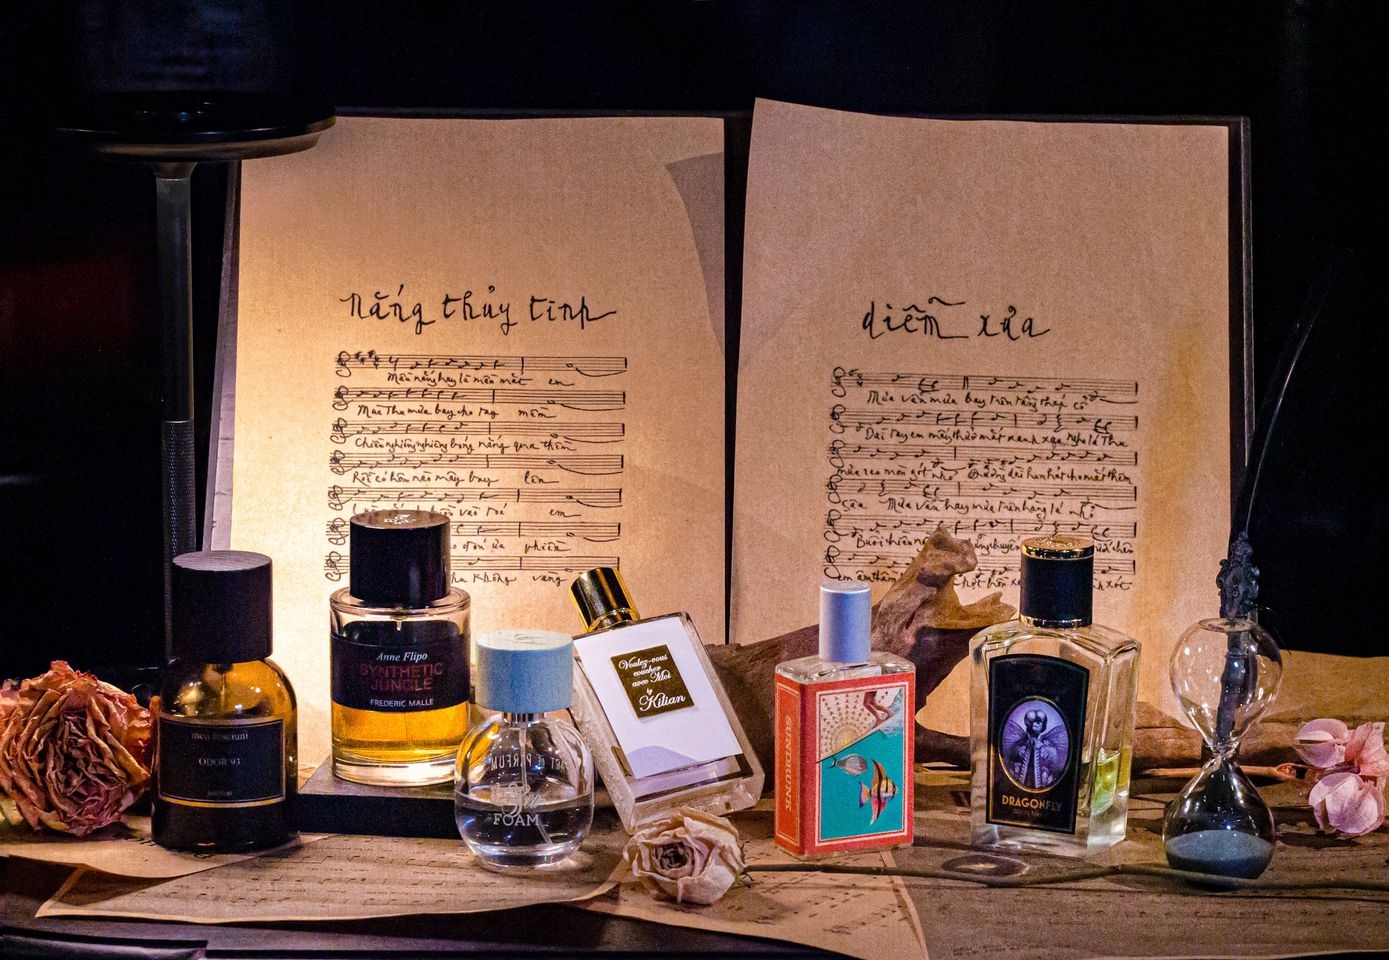 Nắng thủy tinh
Màu nắng hay là màu mắt em
Mùa thu mưa bay cho tay mềm
Chiều nghiêng nghiêng bóng nắng qua thềm
Rồi có hôm nào mây bay lên
vào tóc em
phiến
không vàng
diễm xưa
Mưa vẫn mưa bay trên tầng tháp cổ
Dài tay em mấy thuở mắt xanh xao Nghe lá Thu
mưa reo mòn gót nhỏ Đường dài hun hút cho mắt thêm
sâu Mưa vẫn hay mưa trên hàng lá nhỏ
Buổi chiều
em
meo fusciuni
ODOR 93
parfum
Anne Flipo
SYNTHETIC
JUNGLE
FREDERIC MALLE
ART OF PARFUM
Sea
FOAM
Voulez-vous
coucher
avec Moi
by
Kilian
SUNDRUNK
DRAGONFLY